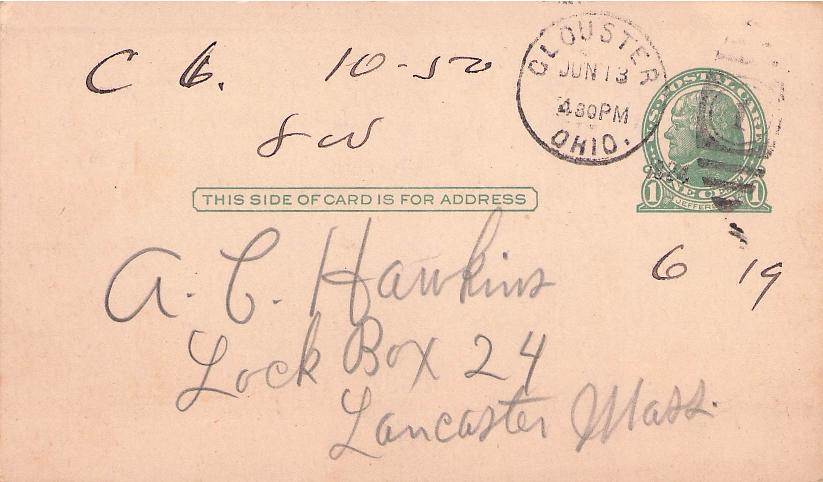 C 6. 10-50
GLOUSTER
JUN 13
4 30PM
OHIO.
U.S. POSTAL CARD
1 ONE CENT 1
JEFFERSON
THIS SIDE OF CARD IS FOR ADDRESS
6 19
A. C. Hawkins
Lock Box 24
Lancaster Mass.